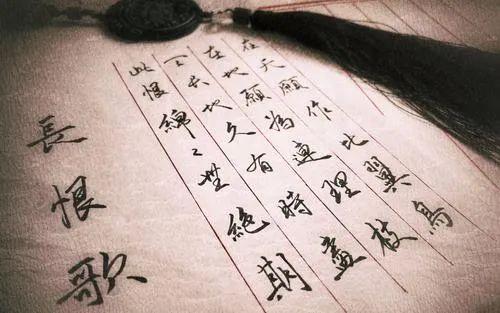 在天願作比翼鳥
在地願為連理枝
天長地久有時盡
此恨綿〻無絕期
長恨歌